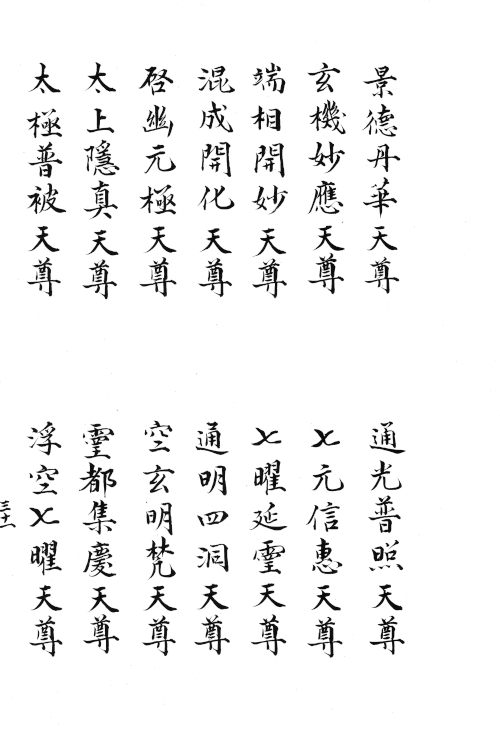 景德丹華天尊
通光普照天尊
玄機妙應天尊
七元信惠天尊
端相開妙天尊
七曜延靈天尊
混成開化天尊
通明四洞天尊
啓幽元極天尊
空玄明梵天尊
太上隱真天尊
靈都集慶天尊
太極普被天尊
浮空七曜天尊
三十一